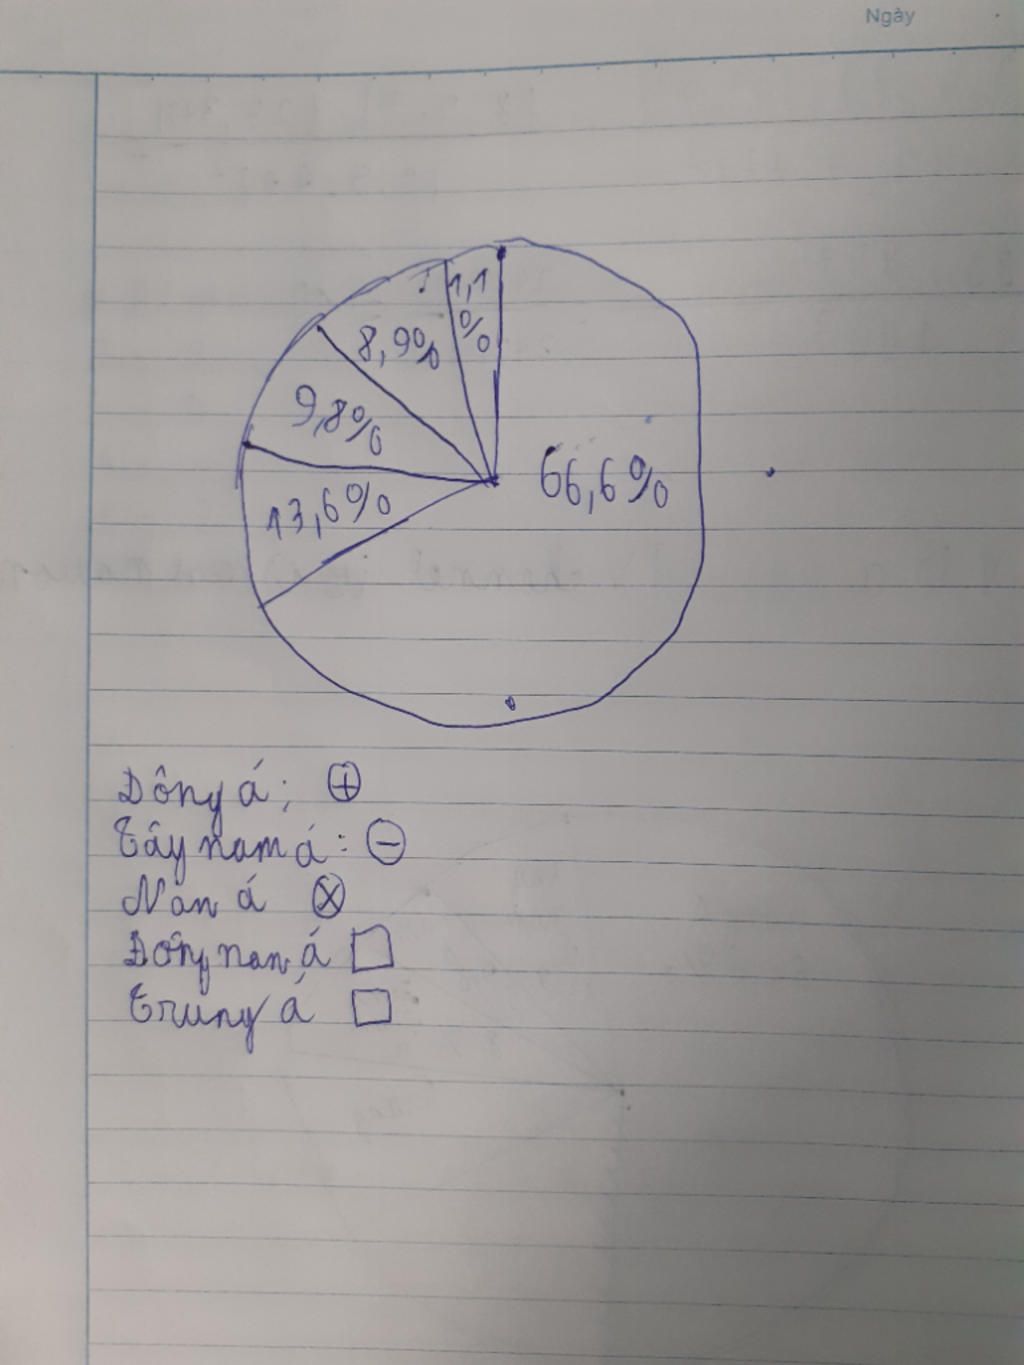 Ngày
1,1
%
8,9%
9,8%
66,6%
13,6%
Đông á;
Tây nam á:
Nan á
Đông nan á
Trung á